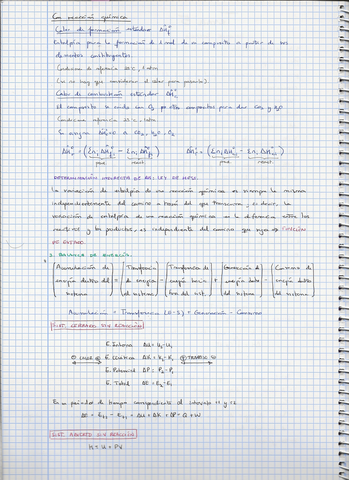 Con reacción química
Calor de formación estándar ΔH°f
Entalpía para la formación de 1 mol de un compuesto a partir de sus
elementos constituyentes.
Condiciones de referencia 25°C, 1 atm
(no hay que considerar el calor para
Calor de combustión estándar ΔH°c
El compuesto se oxida con O2 para dar CO2 y H2O
Condiciones referencia 25°C, 1 atm
Se asigna ΔH°c=0 a CO2, H2O, O2
ΔH°r = (Σni ΔH°f - Σni ΔH°f) ΔH°r = (Σni ΔH°c - Σni ΔH°c)
prod. react. prod. react.
DETERMINACIÓN INDIRECTA DE ΔH: LEY DE HESS.
La variación de entalpía de una reacción química es siempre la misma
independientemente del camino a través del que transcurre, es decir, la
variación de entalpía de una reacción química es la diferencia entre los
reactivos y los productos, es independiente del camino que siga → FUNCIÓN
DE ESTADO.
2. BALANCE DE ENERGÍA:
Acumulación de energía dentro del sistema = Transferencia de energía al sistema - Transferencia de energía hacia fuera del sist. + Generación de energía dentro del sistema - Consumo de energía dentro del sistema
Acumulación = Transferencia (E-S) + Generación - Consumo
SIST. CERRADO SIN REACCIÓN
E. Interna ΔU = U2-U1
Q CALOR E. Cinética ΔK = K2-K1 TRABAJO
E. Potencial ΔP = P2-P1
E. Total ΔE = E2-E1
En un periodo de tiempo correspondiente al intervalo t1 y t2
ΔE = Et2 - Et1 = ΔU + ΔK + ΔP = Q + W
SIST. ABIERTO SIN REACCIÓN
H = U + PV